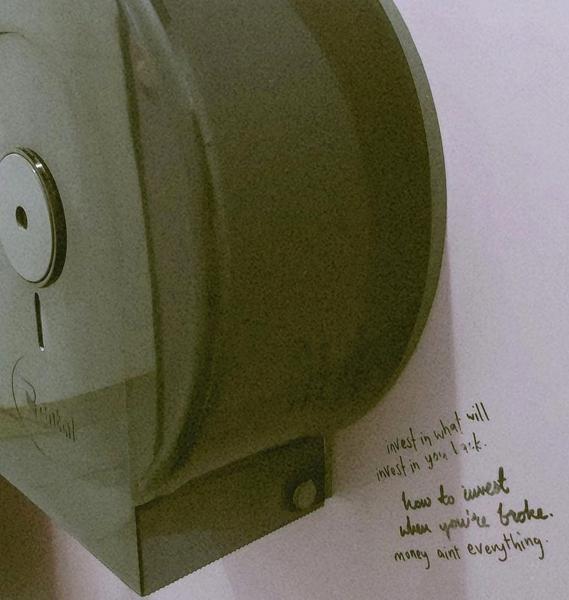 invest in what will
invest in you back.
how to invest
when you're broke.
money aint everything.